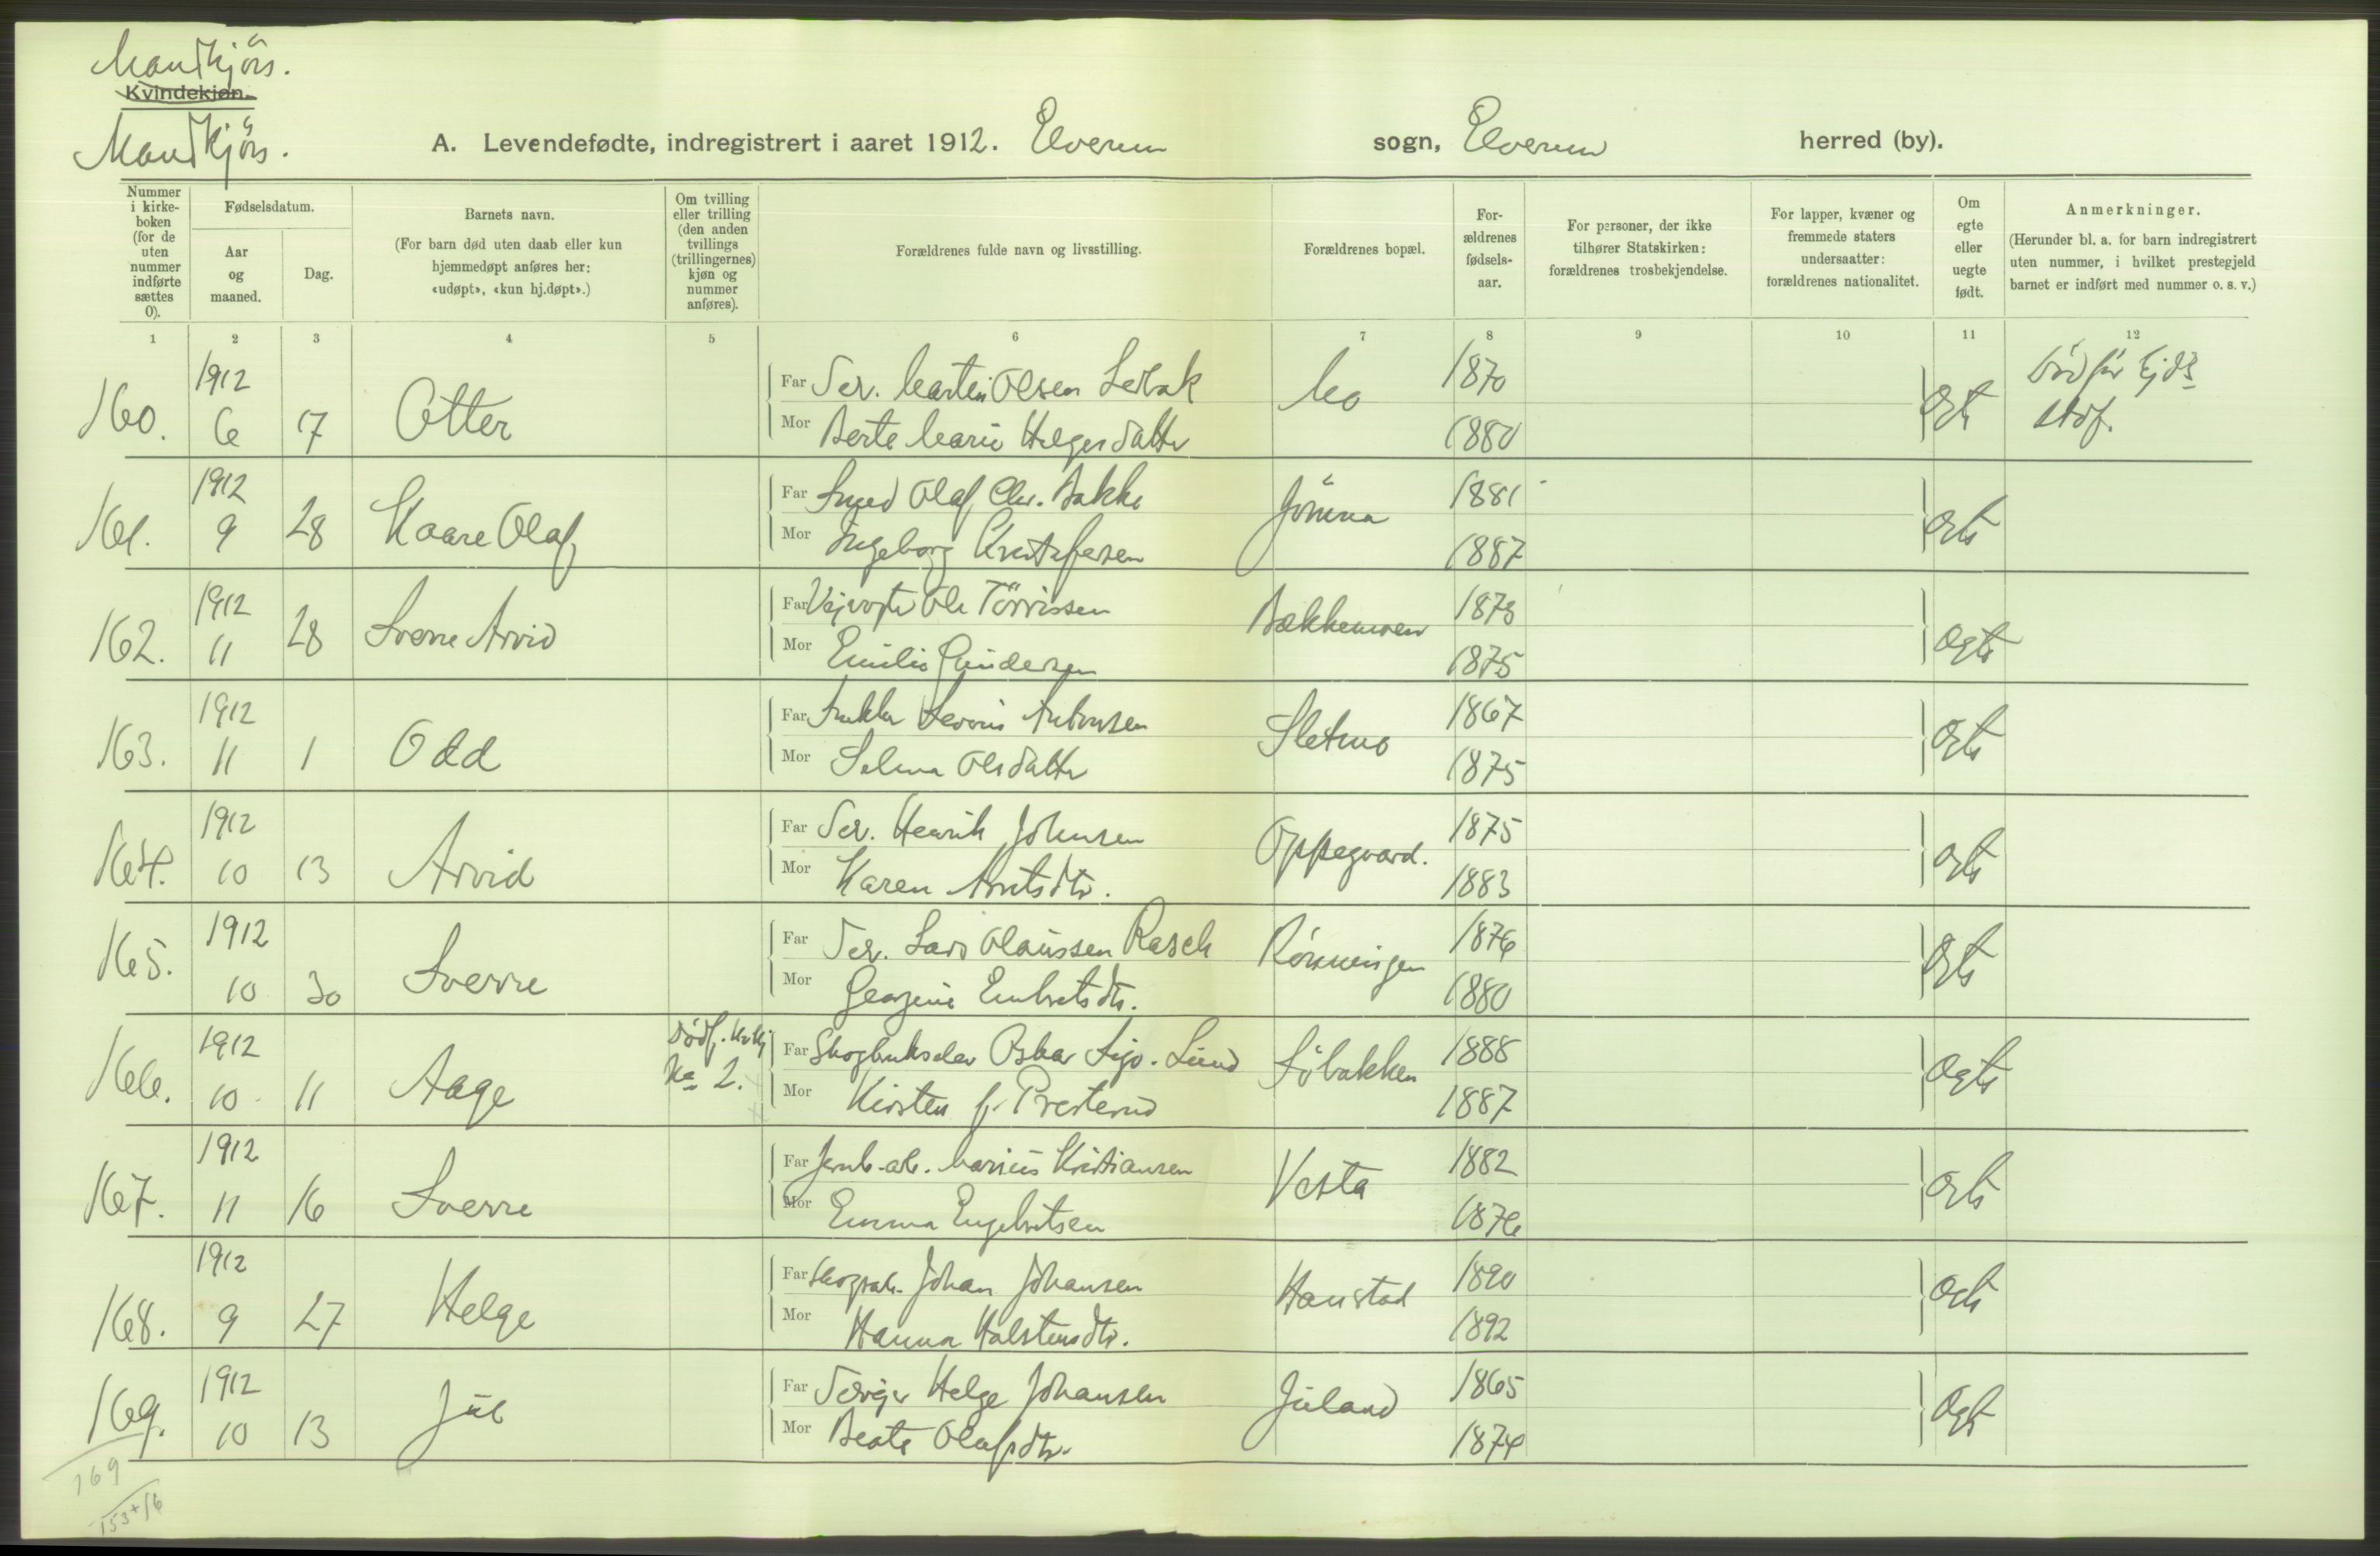 Mandkjøn.
Kvindekjøn.
Mandkjøn.
A. Levendefødte, indregistrert i aaret 1912. Elverum sogn, Elverum herred (by).
Nummer i kirkeboken (for de uten nummer indførte sættes 0).
Fødselsdatum.
Aar og maaned.
Dag.
Barnets navn.
(For barn død uten daab eller kun hjemmedøpt anføres her: «udøpt», «kun hj.døpt».)
Om tvilling eller trilling (den anden tvillings (trillingernes) kjøn og nummer anføres).
Forældrenes fulde navn og livsstilling.
Forældrenes bopæl.
Forældrenes fødselsaar.
For personer, der ikke tilhører Statskirken: forældrenes trosbekjendelse.
For lapper, kvæner og fremmede staters undersaatter: forældrenes nationalitet.
Om egte eller uegte født.
Anmerkninger.
(Herunder bl. a. for barn indregistrert uten nummer, i hvilket prestegjeld barnet er indført med nummer o. s. v.)
1 2 3 4 5 6 7 8 9 10 11 12
160. 1912 6 17 Otter
Far Ser. Martin Olsen Mo 1870
Mor Berte Marie Helgesdatter 1880 Egte
161. 1912 9 28 Kaare Olaf
Far Smed Olaf Chr. Bakke Jömna 1881
Mor Ingeborg Kristofersen 1887 Egte
162. 1912 11 28 Sverre Arvid
Far Ole Törrissen Bækkemoen 1873
Mor Emilie Gundersen 1875 Egte
163. 1912 11 1 Odd
Far Antonsen Sletmo 1867
Mor Selma Olsdatter 1875 Egte
164. 1912 10 13 Arvid
Far Ser. Henrik Johnsen Oppegaard. 1875
Mor Karen Arntsdtr. 1883 Egte
165. 1912 10 30 Sverre
Far Ser. Lars Olaussen Rasch Rönningen 1876
Mor Georgine Embretsdtr. 1880 Egte
166. 1912 10 11 Aage Dödf. Kvkj No 2.
Far Oskar Sigv. Lund Löbakken 1888
Mor Kirsten f. Presterud 1887 Egte
167. 1912 11 16 Sverre
Far Jernb.arb. Marius Kristiansen Vesta 1882
Mor Emma Engebretsen 1876 Egte
168. 1912 9 27 Helge
Far Skogsarb. Johan Johansen Hanstad 1890
Mor Hanna Halstensdtr. 1892 Egte
169. 1912 10 13 Jul
Far Helge Johansen Juland 1865
Mor Beate Olafsdtr. 1874 Egte
169
153+16